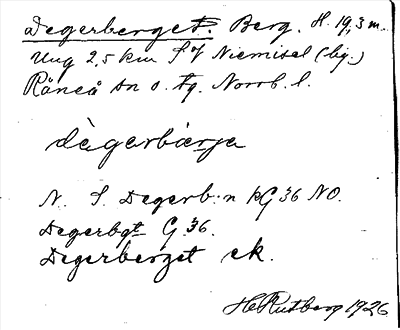 Degerberget. Berg. H. 19,3 m.
Ung 2,5 km S of Niemisel (by.)
Råneå sn o. tg. Norrb. l.
degerbærje
N. S. Degerb:n kG 36 NO.
Degerbgt G 36.
Degerberget ek.
H Rutberg 1926